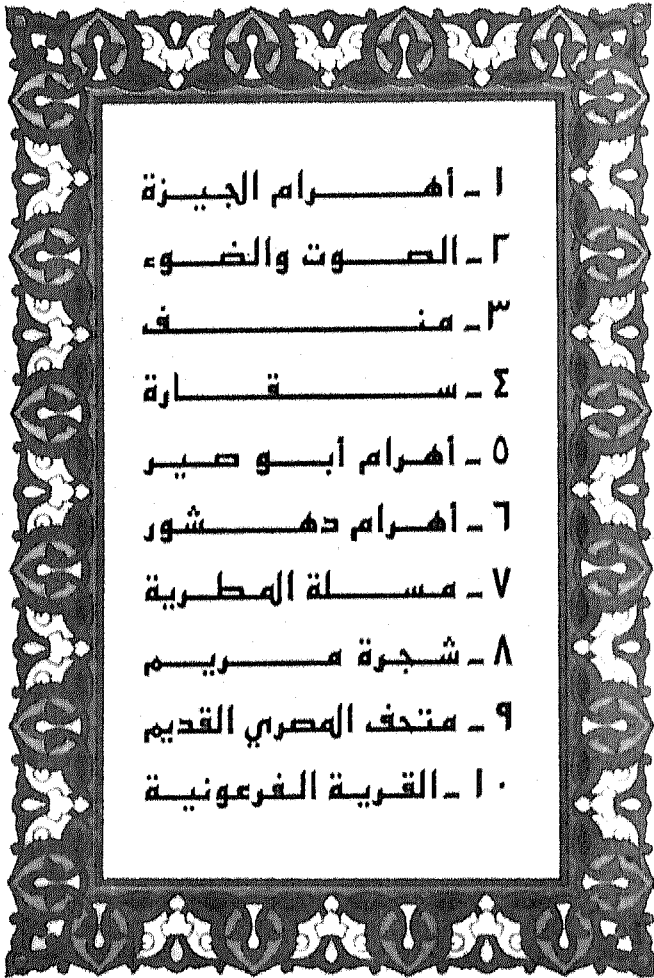 ١ - أهرام الجيزة
٢ - الصوت والضوء
٣ - منف
٤ - سقارة
٥ - أهرام أبو صير
٦ - أهرام دهشور
٧ - مسلة المطرية
٨ - شجرة مريم
٩ - متحف المصري القديم
١٠ - القرية الفرعونية